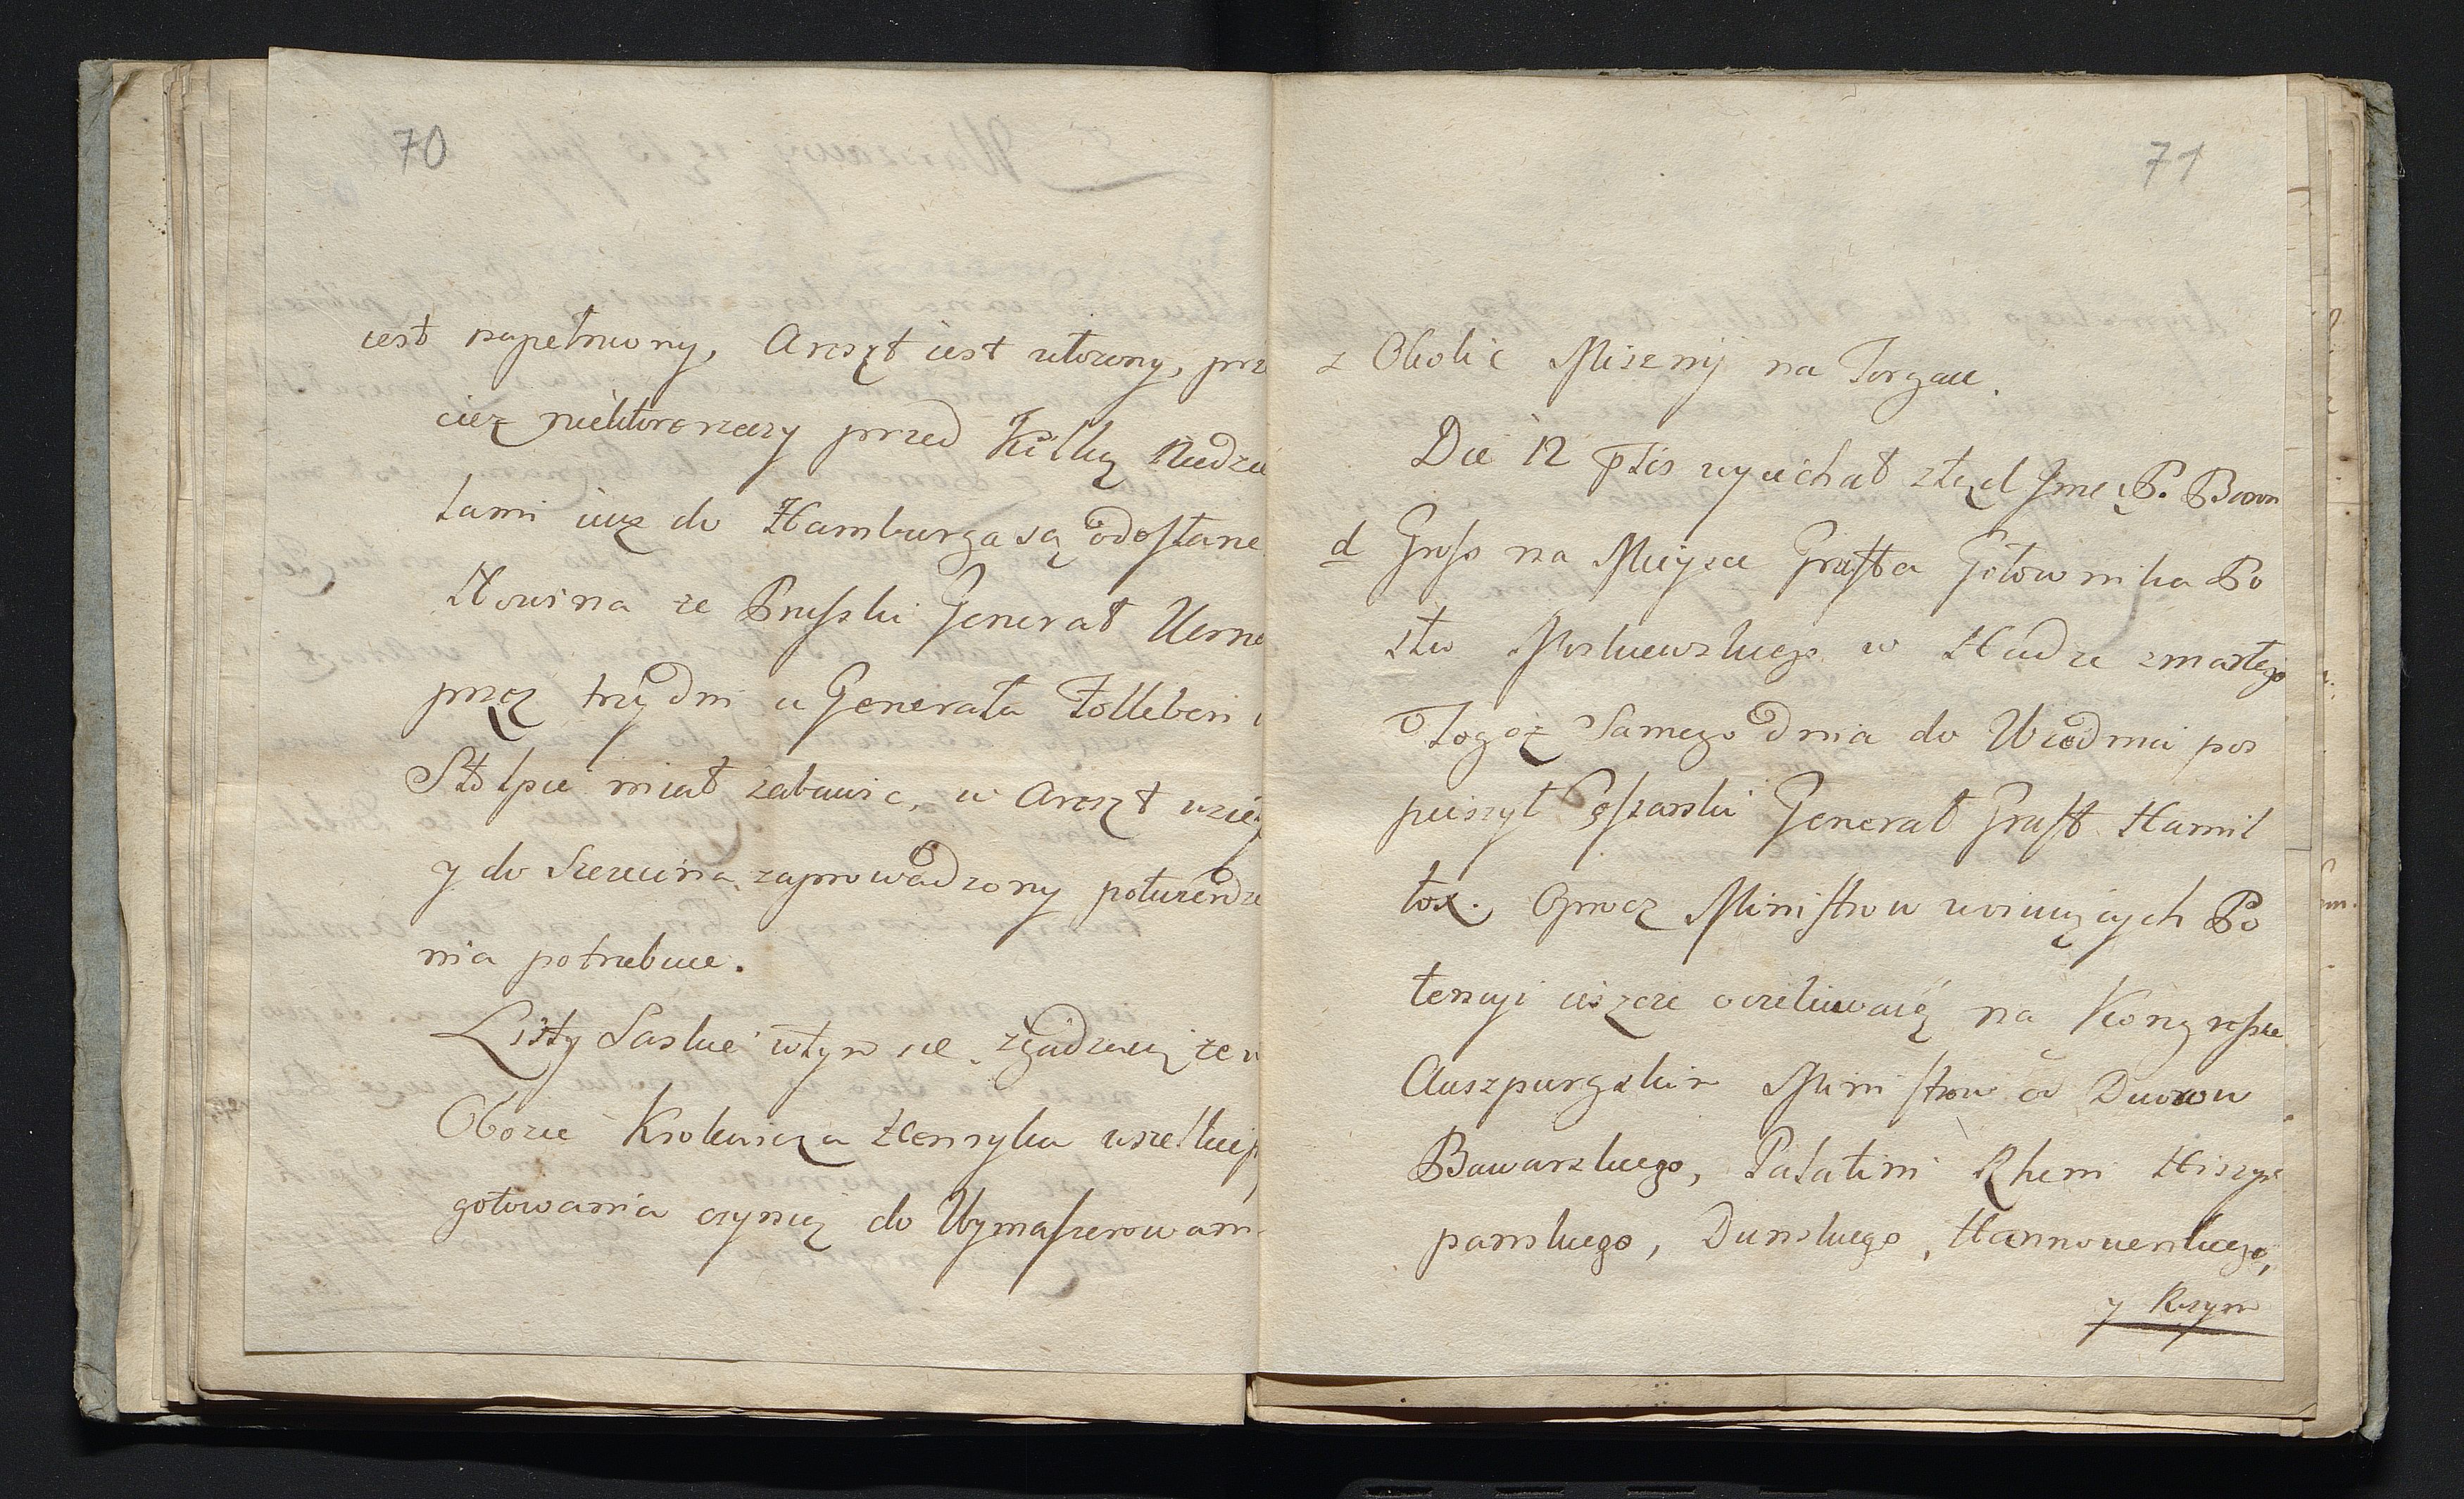 70
iest napełniony, Areszt iest ułozony, prze
ciez niektore rzeczy przed Kilką Niedzie
lami iuz do Hamburga są odesłane
Nowina ze Pruski Generał Werne
przez trzy dni u Generała Totleben
Stolpie miał zabawic, w Areszt wzięty
y do Szczecina zaprowadzony potwierdze
nia potrzebuie.
Listy Saskie wtym sie zgadzaią ze w
Obozie Krolewicza Henryka wszelkie p
gotowania czynią do Wymaszerowan
71
z Okolic Miszny na Torgau.
Die 12 ptis wyiechał ztąd Jmć P. Baron
d Gross na Mieysce Graffa Gołownika Po
sła Moskiewskiego w Hadze zmarłego
Tegoz Samego dnia do Wiednia pos
pieszył Cesarski Generał Graff Hamil
ton. Oprocz Ministrow woiuiących Po
tencyi ieszcze oczekiwaią na Kongressie
Auszpurgskim Ministrow od Dworow
Bawarskiego, Palatini Rheni Hiszp
panskiego, Dunskiego, Hannowerskiego,
y Rzym